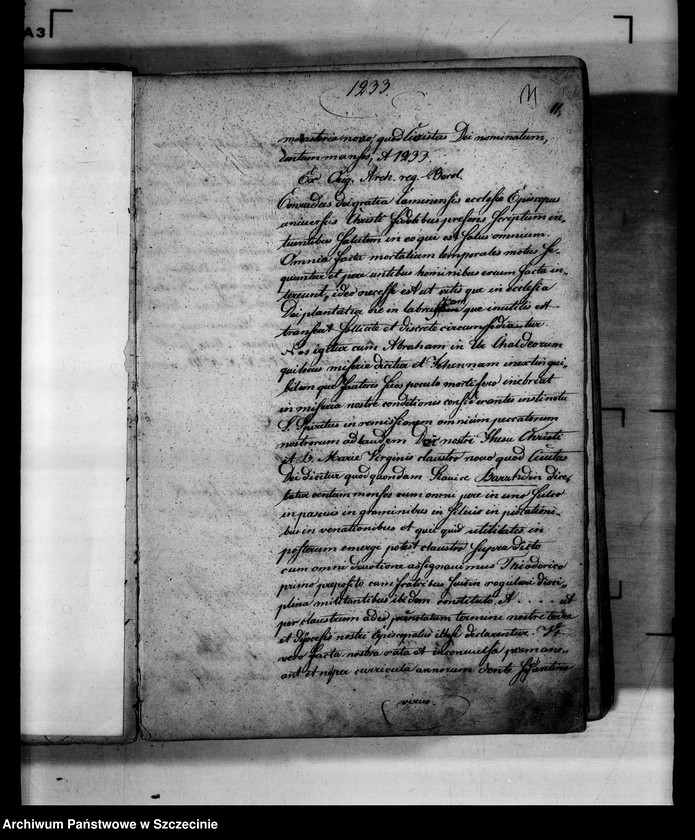 A3
1233.
11.
monasterio novo, quod Civitas Dei nominatum,
centum mansos, A 1233.
Ex Orig. Arch. reg. Berol.
Conradus dei gratia Caminensis ecclesie Episcopus
universis Christi fidelibus presens scriptum in-
tuentibus salutem in eo qui est salus omnium.
Omnia facta mortalium temporales motus se-
quuntur et pere untibus hominibus eorum facta in-
tereunt, ideo necesse est ut vitis que in ecclesia
Dei plantatur ne in labruscam que inutilis est
transeat sollicite et discrete circumfodiatur.
Nos igitur cum Abraham in Ur Chaldeorum
qui locus miserie dicitur et Jehennam inextingui-
bilem que fautores suos poculo mortifero inebriat
in miseria nostre conditionis considerantes instinctu
S. Spiritus in remissionem omnium peccatorum
nostrorum ad laudem Dei nostri Jhesu Christi
et b. Marie Virginis claustro novo quod Civitas
Dei dicitur quod quondam Slavice Barzkdin dice-
batur centum mansos cum omni jure in uno
in pascuis in graminibus in silvis in piscationi-
bus in venationibus et quic quid utilitatis in
posterum emerge potest claustro supra dicto
cum omni devotione assignavimus Thioderico
primo preposito cum fratribus suis in regulari disci-
plina militantibus ibidem constituto. et . . . . . ut
per claustrum adeo termini nostre
et diocesis nostri Episcopatus declarentur. Ut
vero facta nostra rata et inconvulsa permane-
ant et ne per curricula annorum dente
virus.
Archiwum Państwowe w Szczecinie